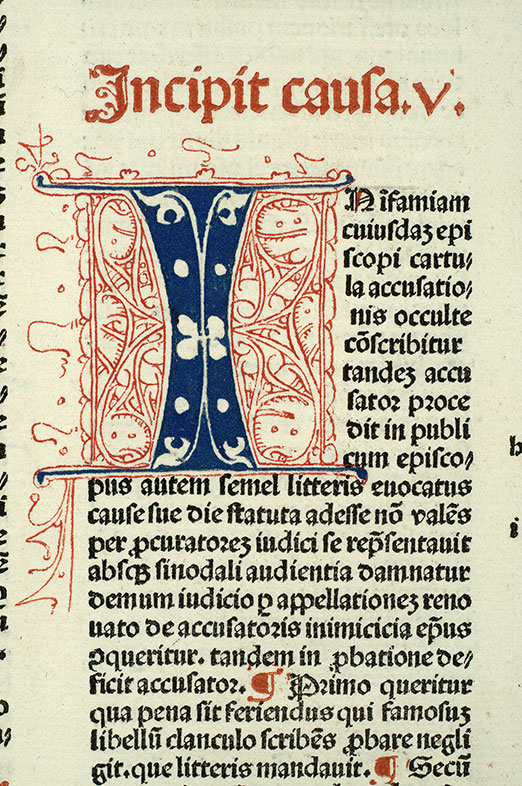 Incipit causa.v.
IN ĩfamiam
cuiusdaꝫ epi
scopi cartu⸗
la accusatio⸗
nis occulte
cõscribitur
tandeꝫ accu
sator proce
dit in publi
cum episco⸗
pus autem semel litteris euocatus
cause sue die statuta adesse nõ valẽs
per ꝓcuratoreꝫ iudici se rep̃sentauit
absqꝫ sinodali audientia damnatur
demum iudicio ꝑ appellationeꝫ reno
uato de accusatoris inimicicia ep̃us
ꝯqueritur. tandem in ꝓbatione de⸗
ficit accusator. ¶ Primo queritur
qua pena sit feriendus qui famosuꝫ
libellũ clanculo scribẽs ꝓbare negli
git. que litteris mandauit. ¶ Secũ